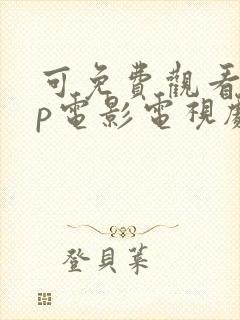 可免費觀看
p電影電視劇
登貝萊